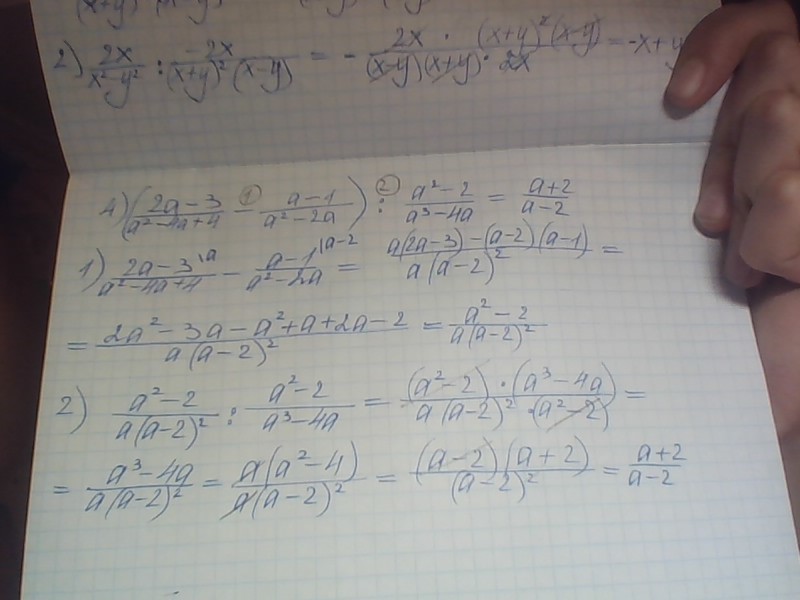 2) 2x/(x²-y²) : -2x/((x+y)²(x-y)) = - (2x · (x+y)²(x-y))/((x-y)(x+y) · 2x) = -x+y
4) ((2a-3)/(a²-4a+4) -① (a-1)/(a²-2a)) :② (a²-2)/(a³-4a) = (a+2)/(a-2)
1) (2a-3\a)/(a²-4a+4) - (a-1\a-2)/(a²-2a) = (a(2a-3)-(a-2)(a-1))/(a(a-2)²) =
= (2a²-3a-a²+a+2a-2)/(a(a-2)²) = (a²-2)/(a(a-2)²)
2) (a²-2)/(a(a-2)²) : (a²-2)/(a³-4a) = ((a²-2)·(a³-4a))/(a(a-2)²·(a²-2)) =
= (a³-4a)/(a(a-2)²) = (a(a²-4))/(a(a-2)²) = ((a-2)(a+2))/((a-2)²) = (a+2)/(a-2)